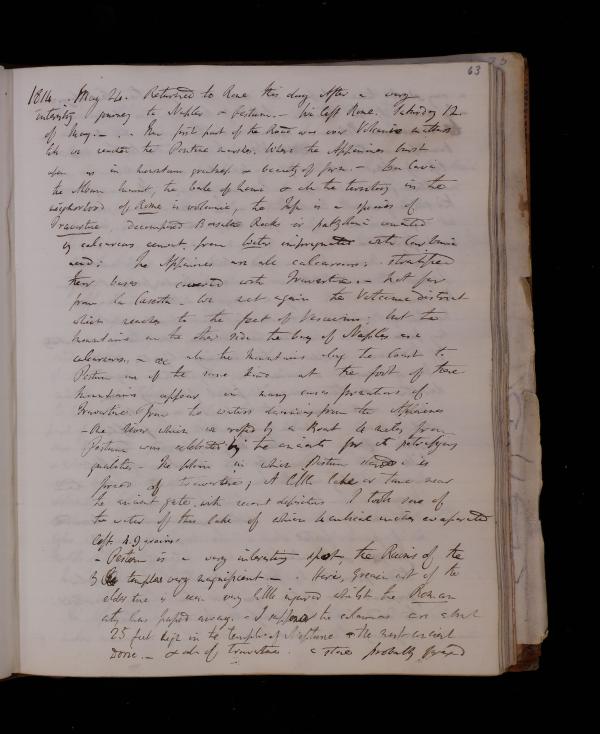 63
1814. May 24. Returned to Rome this day after a very
interesting journey to Naples & Pestum. - We left Rome. Saturday 12
of May. - . - The first part of the Road was over Volcanic matters
till we reached the Pontine marshes. Where the Appenines burst
upon us in mountain grandeur & beauty of form -
the Alban mount, the lake of & all the territory in the
neighborhood of Rome is volcanic, the is a species of
Travertine, decomposed Basaltic Rocks or cemented
by calcareous cement, from water impregnated with Carbonic
acid: The Appenines are all calcareous; stratified
their bases covered with Travertine. - Not far
from la Caserta. We met again the Volcanic district
which reaches to the feet of Vesuvius; but the
mountains on the other side the bay of Naples are
calcareous. - all the mountains along the Coast to
Pestum are of the same kind at the foot of these
mountains appear in many cases formations of
Travertine from the waters deriving from the Appenines
- One River which we passed by a boat 4 miles from
Pestum was celebrated by the ancients for its petrifying
qualities - The plain in which Pestum stands is
formed of travertine; A little lake or near
the ancient gate, with recent deposition I took some of
the water of this lake of which cubical inches evaporated
left 4.9 grains.
- Pestum is a very interesting spot, the Ruins of the
3 temples very magnificent - . Here, Grecian art of the
elder time is seen very little injured whilst the Roman
city has passed away. - I suppose the columns are about
25 feet high in the temple of Neptune & the most ancient
Doric. - & all of travertine. a stone probably formed